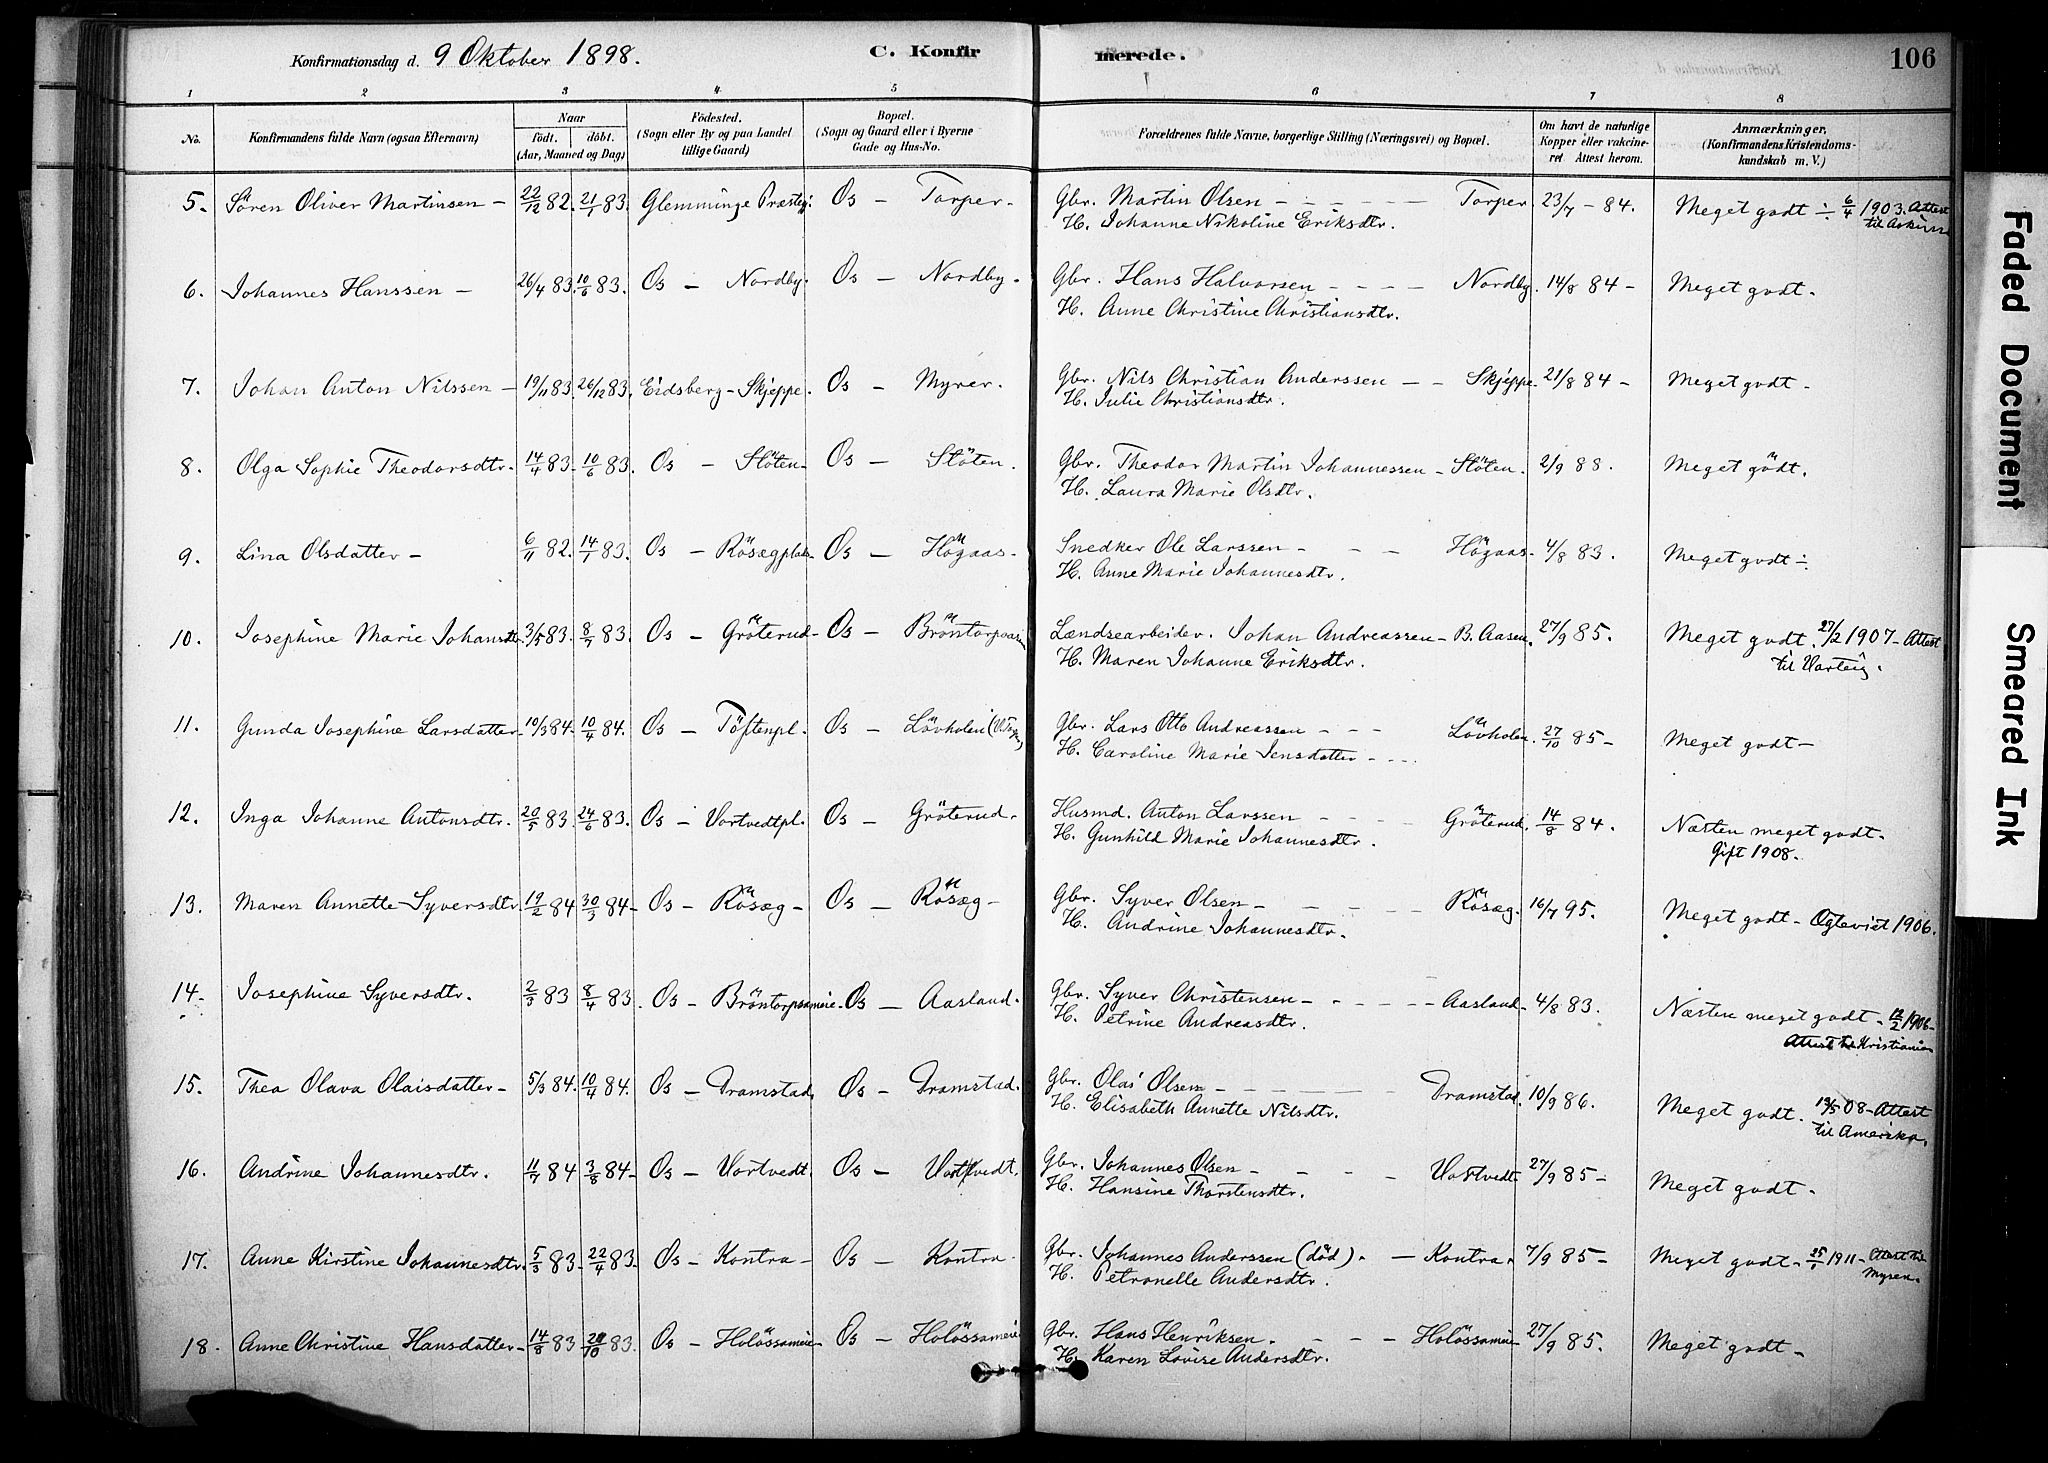 Konfirmationsdag d. 9 Oktober 1898.
C. Konfirmerede.
106
1 2 3 4 5 6 7 8
No. Konfirmandens fulde Navn (ogsaa Efternavn) Naar født. døbt. (Aar, Maaned og Dag) Födested. (Sogn eller By og paa Landet tillige Gaard) Bopæl. (Sogn og Gaard eller i Byerne Gade og Hus-No. Forældrenes fulde Navne, borgerlige Stilling (Næringsvei) og Bopæl. Om havt de naturlige Kopper eller vakcineret Attest herom. Anmærkninger, (Konfirmandens Kristendomskundskab m. V.)
5. Sören Oliver Martinsen - 22/12 82. 21/1 83. Glemminge Præsteg: Os - Torper. Gbr. Martin Olsen - - - - - Torper 23/7 - 84. Meget godt ÷ 6/4 1903. Attest
H. Johanne Nikoline Eriksdtr. til Askim
6. Johannes Hanssen - 26/4 83. 10/6 83. Os - Nordby. Os - Nordby. Gbr. Hans Halvorsen - - - - Nordby. 14/8 84 - Meget godt.
H. Anne Christine Christiansdtr.
7. Johan Anton Nilssen - 19/11 83. 26/12 83. Eidsberg - Skjeppe. Os - Myrer. Gbr. Nils Christian Anderssen - - Skjeppe. 21/8 84 - Meget godt -
H. Julie Christiansdtr.
8. Olga Sophie Theodorsdtr. 14/4 83. 10/6 83. Os - Slöten. Os - Slöten. Gbr. Theodor Martin Johannessen - Slöten. 2/9 88. Meget godt.
H. Laura Marie Olsdtr.
9. Lina Olsdatter - 6/11 82. 14/1 83. Os - Rösægplads Os - Högaas - Snedker Ole Larssen - - - Högaas - 4/8 83. Meget godt ÷
H. Anne Marie Johannesdtr.
10. Josephine Marie Johansdtr. 3/5 83. 8/7 83. Os - Gröterud - Os - Bröntorpaasen Lændsearbeider. Johan Andreassen - B. Aasen. 27/9 85. Meget godt. 27/2 1907 - Attest
H. Maren Johanne Eriksdtr. til Varteig.
11. Gunda Josephine Larsdatter 10/3 84. 10/4 84. Os - Töftenpl. Os - Lövholen Gbr. Lars Otto Andreassen - - - Lövholen. 27/10 85 - Meget godt -
H. Caroline Marie Jensdatter - - -
12. Inga Johanne Antonsdtr. 20/5 83. 24/6 83. Os - Vortvedtpl. Os - Gröterud. Husmd. Anton Larssen - - - - Gröterud. 14/8 84. Næsten meget godt.
H. Gunhild Marie Johannesdtr. Gift 1908.
13. Maren Annette Syversdtr. 19/2 84 30/3 84 - Os - Rösæg - Os - Rösæg - Gbr. Syver Olsen - - - - - Rösæg. 16/7 95. Meget godt - Ogleviet 1906.
H. Andrine Johannesdtr.
14. Josephine Syversdtr. 2/3 83 8/4 83. Os - Bröntorpsameie. Os - Aasland. Gbr. Syver Christensen - - - - - Aasland - 4/8 83. Næsten meget godt - 12/2 1906 -
H. Petrine Andreasdtr. Attest til Kristiania
15. Thea Olava Olaisdatter - 5/3 84. 10/4 84. Os - Dramstad. Os - Dramstad. Gbr. Olai Olsen - - - - - Dramstad. 10/9 86. Meget godt. 19/5 08 - Attest
H. Elisabeth Annette Nilsdtr. til Amerika.
16. Andrine Johannesdtr. 11/7 84 3/8 84 - Os - Vortvedt. Os - Vortvedt. Gbr. Johannes Olsen - - - - Vortvedt 27/9 85 - Meget godt.
H. Hansine Thorstensdtr.
17. Anne Kirstine Johannesdtr. 5/3 83 - 22/4 83 - Os - Kontra - Os - Kontra. Gbr. Johannes Anderssen (död). - Kontra. 7/9 85 - Meget godt - 25/1 1911 - Attest til
H. Petronelle Andersdtr. Mysen.
18. Anne Christine Hansdatter - 14/8 83 28/10 83. Os - Holössameie - Os - Holössameie Gbr. Hans Henriksen. - - - Holössameie 27/9 85. Meget godt -
H. Karen Lovise Andersdtr.
Faded Document
Smeared Ink